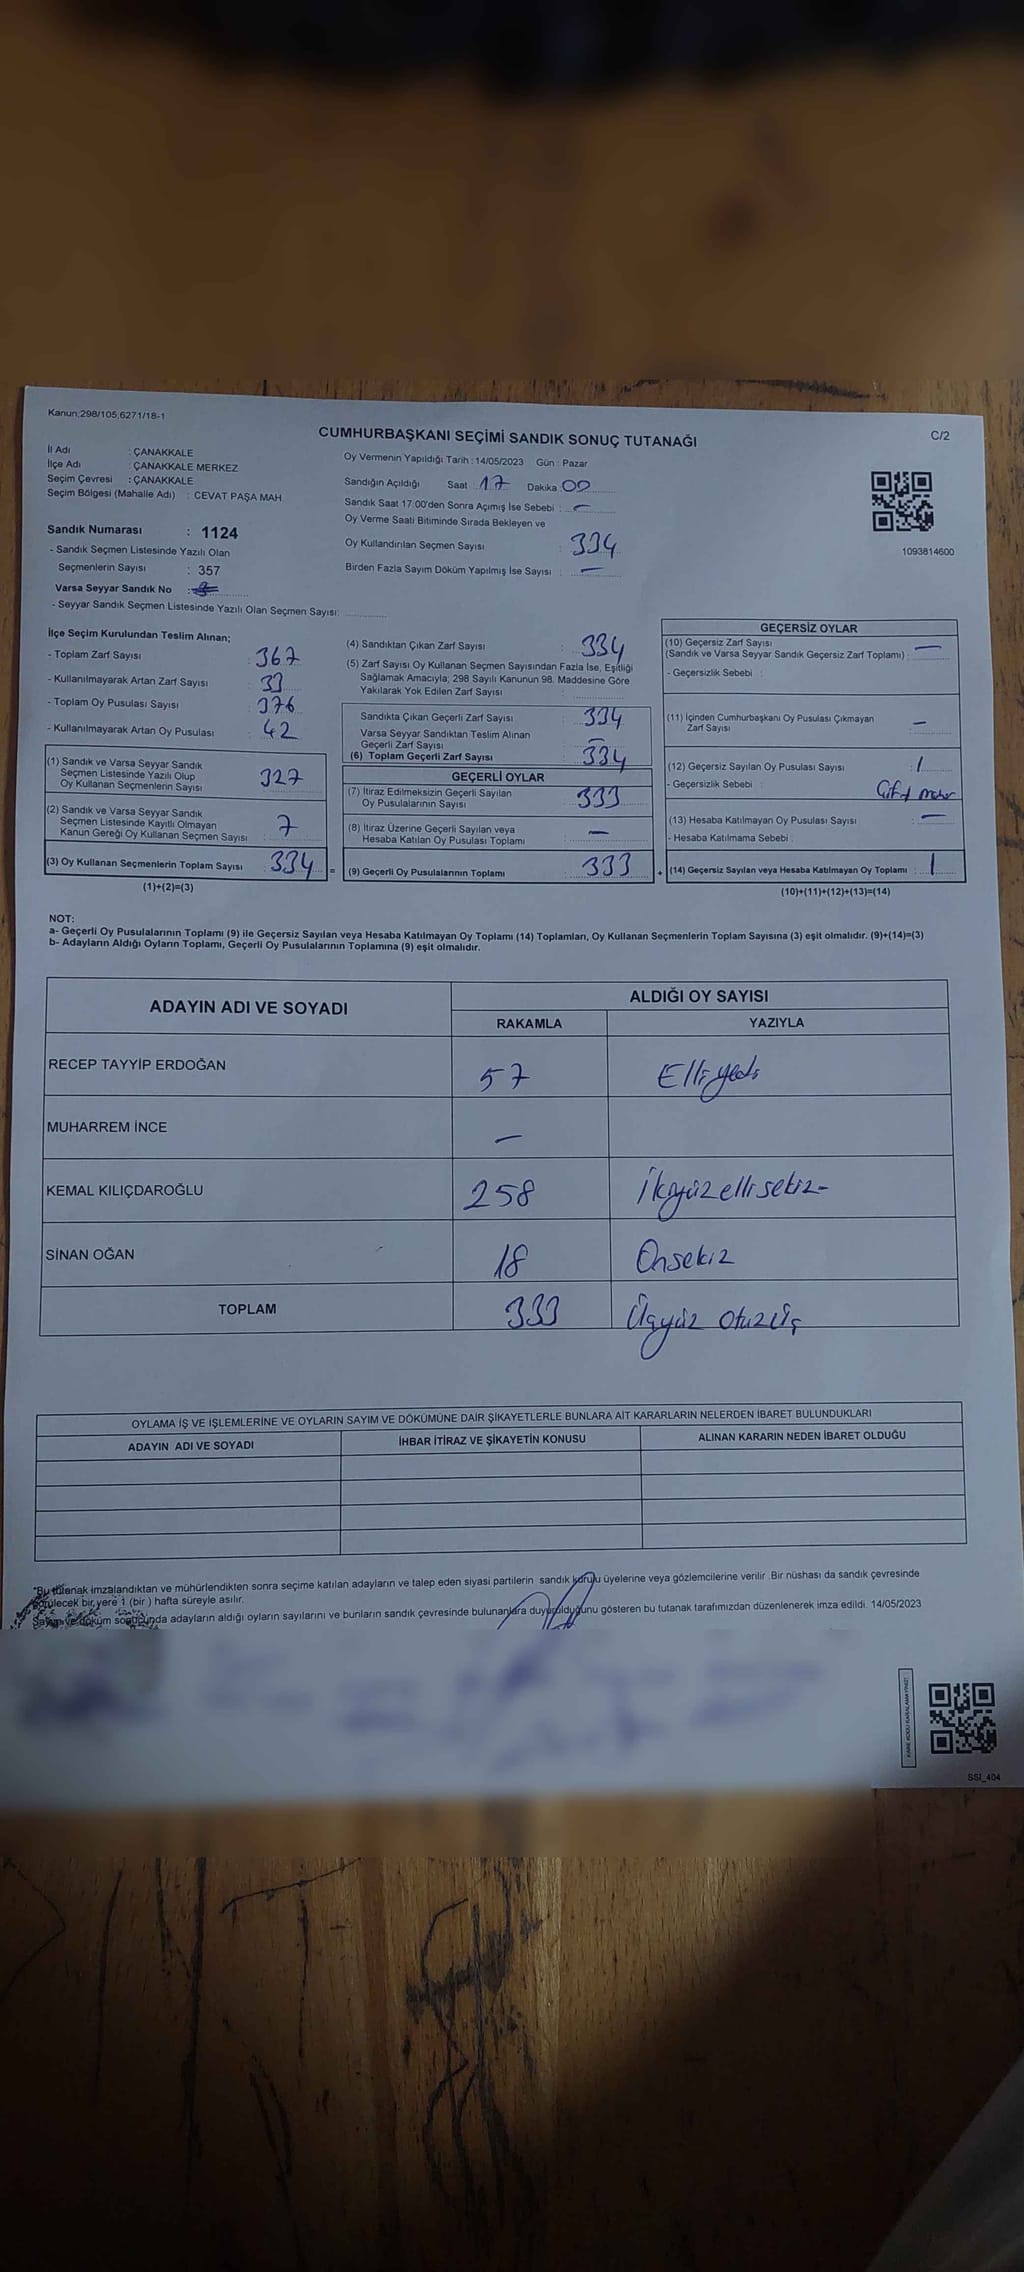 Kanun;298/105,6271/18-1
C/2
CUMHURBAŞKANI SEÇİMİ SANDIK SONUÇ TUTANAĞI
İl Adı : ÇANAKKALE
İlçe Adı : ÇANAKKALE MERKEZ
Seçim Çevresi : ÇANAKKALE
Seçim Bölgesi (Mahalle Adı) : CEVAT PAŞA MAH
Sandık Numarası : 1124
- Sandık Seçmen Listesinde Yazılı Olan
Seçmenlerin Sayısı : 357
Varsa Seyyar Sandık No :
- Seyyar Sandık Seçmen Listesinde Yazılı Olan Seçmen Sayısı:
Oy Vermenin Yapıldığı Tarih : 14/05/2023 Gün : Pazar
Sandığın Açıldığı Saat : 17 Dakika 00
Sandık Saat 17:00'den Sonra Açımış İse Sebebi : –
Oy Verme Saati Bitiminde Sırada Bekleyen ve
Oy Kullandırılan Seçmen Sayısı : 334
Birden Fazla Sayım Döküm Yapılmış İse Sayısı : –
1093814600
İlçe Seçim Kurulundan Teslim Alınan;
- Toplam Zarf Sayısı : 367
- Kullanılmayarak Artan Zarf Sayısı : 33
- Toplam Oy Pusulası Sayısı : 376
- Kullanılmayarak Artan Oy Pusulası : 42
(1) Sandık ve Varsa Seyyar Sandık
Seçmen Listesinde Yazılı Olup
Oy Kullanan Seçmenlerin Sayısı : 327
(2) Sandık ve Varsa Seyyar Sandık
Seçmen Listesinde Kayıtlı Olmayan
Kanun Gereği Oy Kullanan Seçmen Sayısı : 7
(3) Oy Kullanan Seçmenlerin Toplam Sayısı : 334 =
(1)+(2)=(3)
(4) Sandıktan Çıkan Zarf Sayısı : 334
(5) Zarf Sayısı Oy Kullanan Seçmen Sayısından Fazla İse, Eşitliği
Sağlamak Amacıyla; 298 Sayılı Kanunun 98. Maddesine Göre
Yakılarak Yok Edilen Zarf Sayısı :
Sandıkta Çıkan Geçerli Zarf Sayısı : 334
Varsa Seyyar Sandıktan Teslim Alınan
Geçerli Zarf Sayısı : –
(6) Toplam Geçerli Zarf Sayısı : 334
GEÇERLİ OYLAR
(7) İtiraz Edilmeksizin Geçerli Sayılan
Oy Pusulalarının Sayısı : 333
(8) İtiraz Üzerine Geçerli Sayılan veya
Hesaba Katılan Oy Pusulası Toplamı : –
(9) Geçerli Oy Pusulalarının Toplamı : 333 +
GEÇERSİZ OYLAR
(10) Geçersiz Zarf Sayısı
(Sandık ve Varsa Seyyar Sandık Geçersiz Zarf Toplamı) : –
- Geçersizlik Sebebi :
(11) İçinden Cumhurbaşkanı Oy Pusulası Çıkmayan
Zarf Sayısı : –
(12) Geçersiz Sayılan Oy Pusulası Sayısı : 1
- Geçersizlik Sebebi :
(13) Hesaba Katılmayan Oy Pusulası Sayısı : –
- Hesaba Katılmama Sebebi :
(14) Geçersiz Sayılan veya Hesaba Katılmayan Oy Toplamı : 1
(10)+(11)+(12)+(13)=(14)
NOT:
a- Geçerli Oy Pusulalarının Toplamı (9) ile Geçersiz Sayılan veya Hesaba Katılmayan Oy Toplamı (14) Toplamları, Oy Kullanan Seçmenlerin Toplam Sayısına (3) eşit olmalıdır. (9)+(14)=(3)
b- Adayların Aldığı Oyların Toplamı, Geçerli Oy Pusulalarının Toplamına (9) eşit olmalıdır.
ADAYIN ADI VE SOYADI ALDIĞI OY SAYISI
RAKAMLA YAZIYLA
RECEP TAYYİP ERDOĞAN 57 Elliyedi
MUHARREM İNCE –
KEMAL KILIÇDAROĞLU 258 İkiyüzellisekiz-
SİNAN OĞAN 18 Onsekiz
TOPLAM 333 Üçyüz otuzüç
OYLAMA İŞ VE İŞLEMLERİNE VE OYLARIN SAYIM VE DÖKÜMÜNE DAİR ŞİKAYETLERLE BUNLARA AİT KARARLARIN NELERDEN İBARET BULUNDUKLARI
ADAYIN ADI VE SOYADI İHBAR İTİRAZ VE ŞİKAYETİN KONUSU ALINAN KARARIN NEDEN İBARET OLDUĞU
*Bu tutanak imzalandıktan ve mühürlendikten sonra seçime katılan adayların ve talep eden siyasi partilerin sandık kurulu üyelerine veya gözlemcilerine verilir. Bir nüshası da sandık çevresinde
görülecek bir yere 1 (bir) hafta süreyle asılır.
Sayım ve döküm sonucunda adayların aldığı oyların sayılarını ve bunların sandık çevresinde bulunanlara duyurulduğunu gösteren bu tutanak tarafımızdan düzenlenerek imza edildi. 14/05/2023
SSI_404